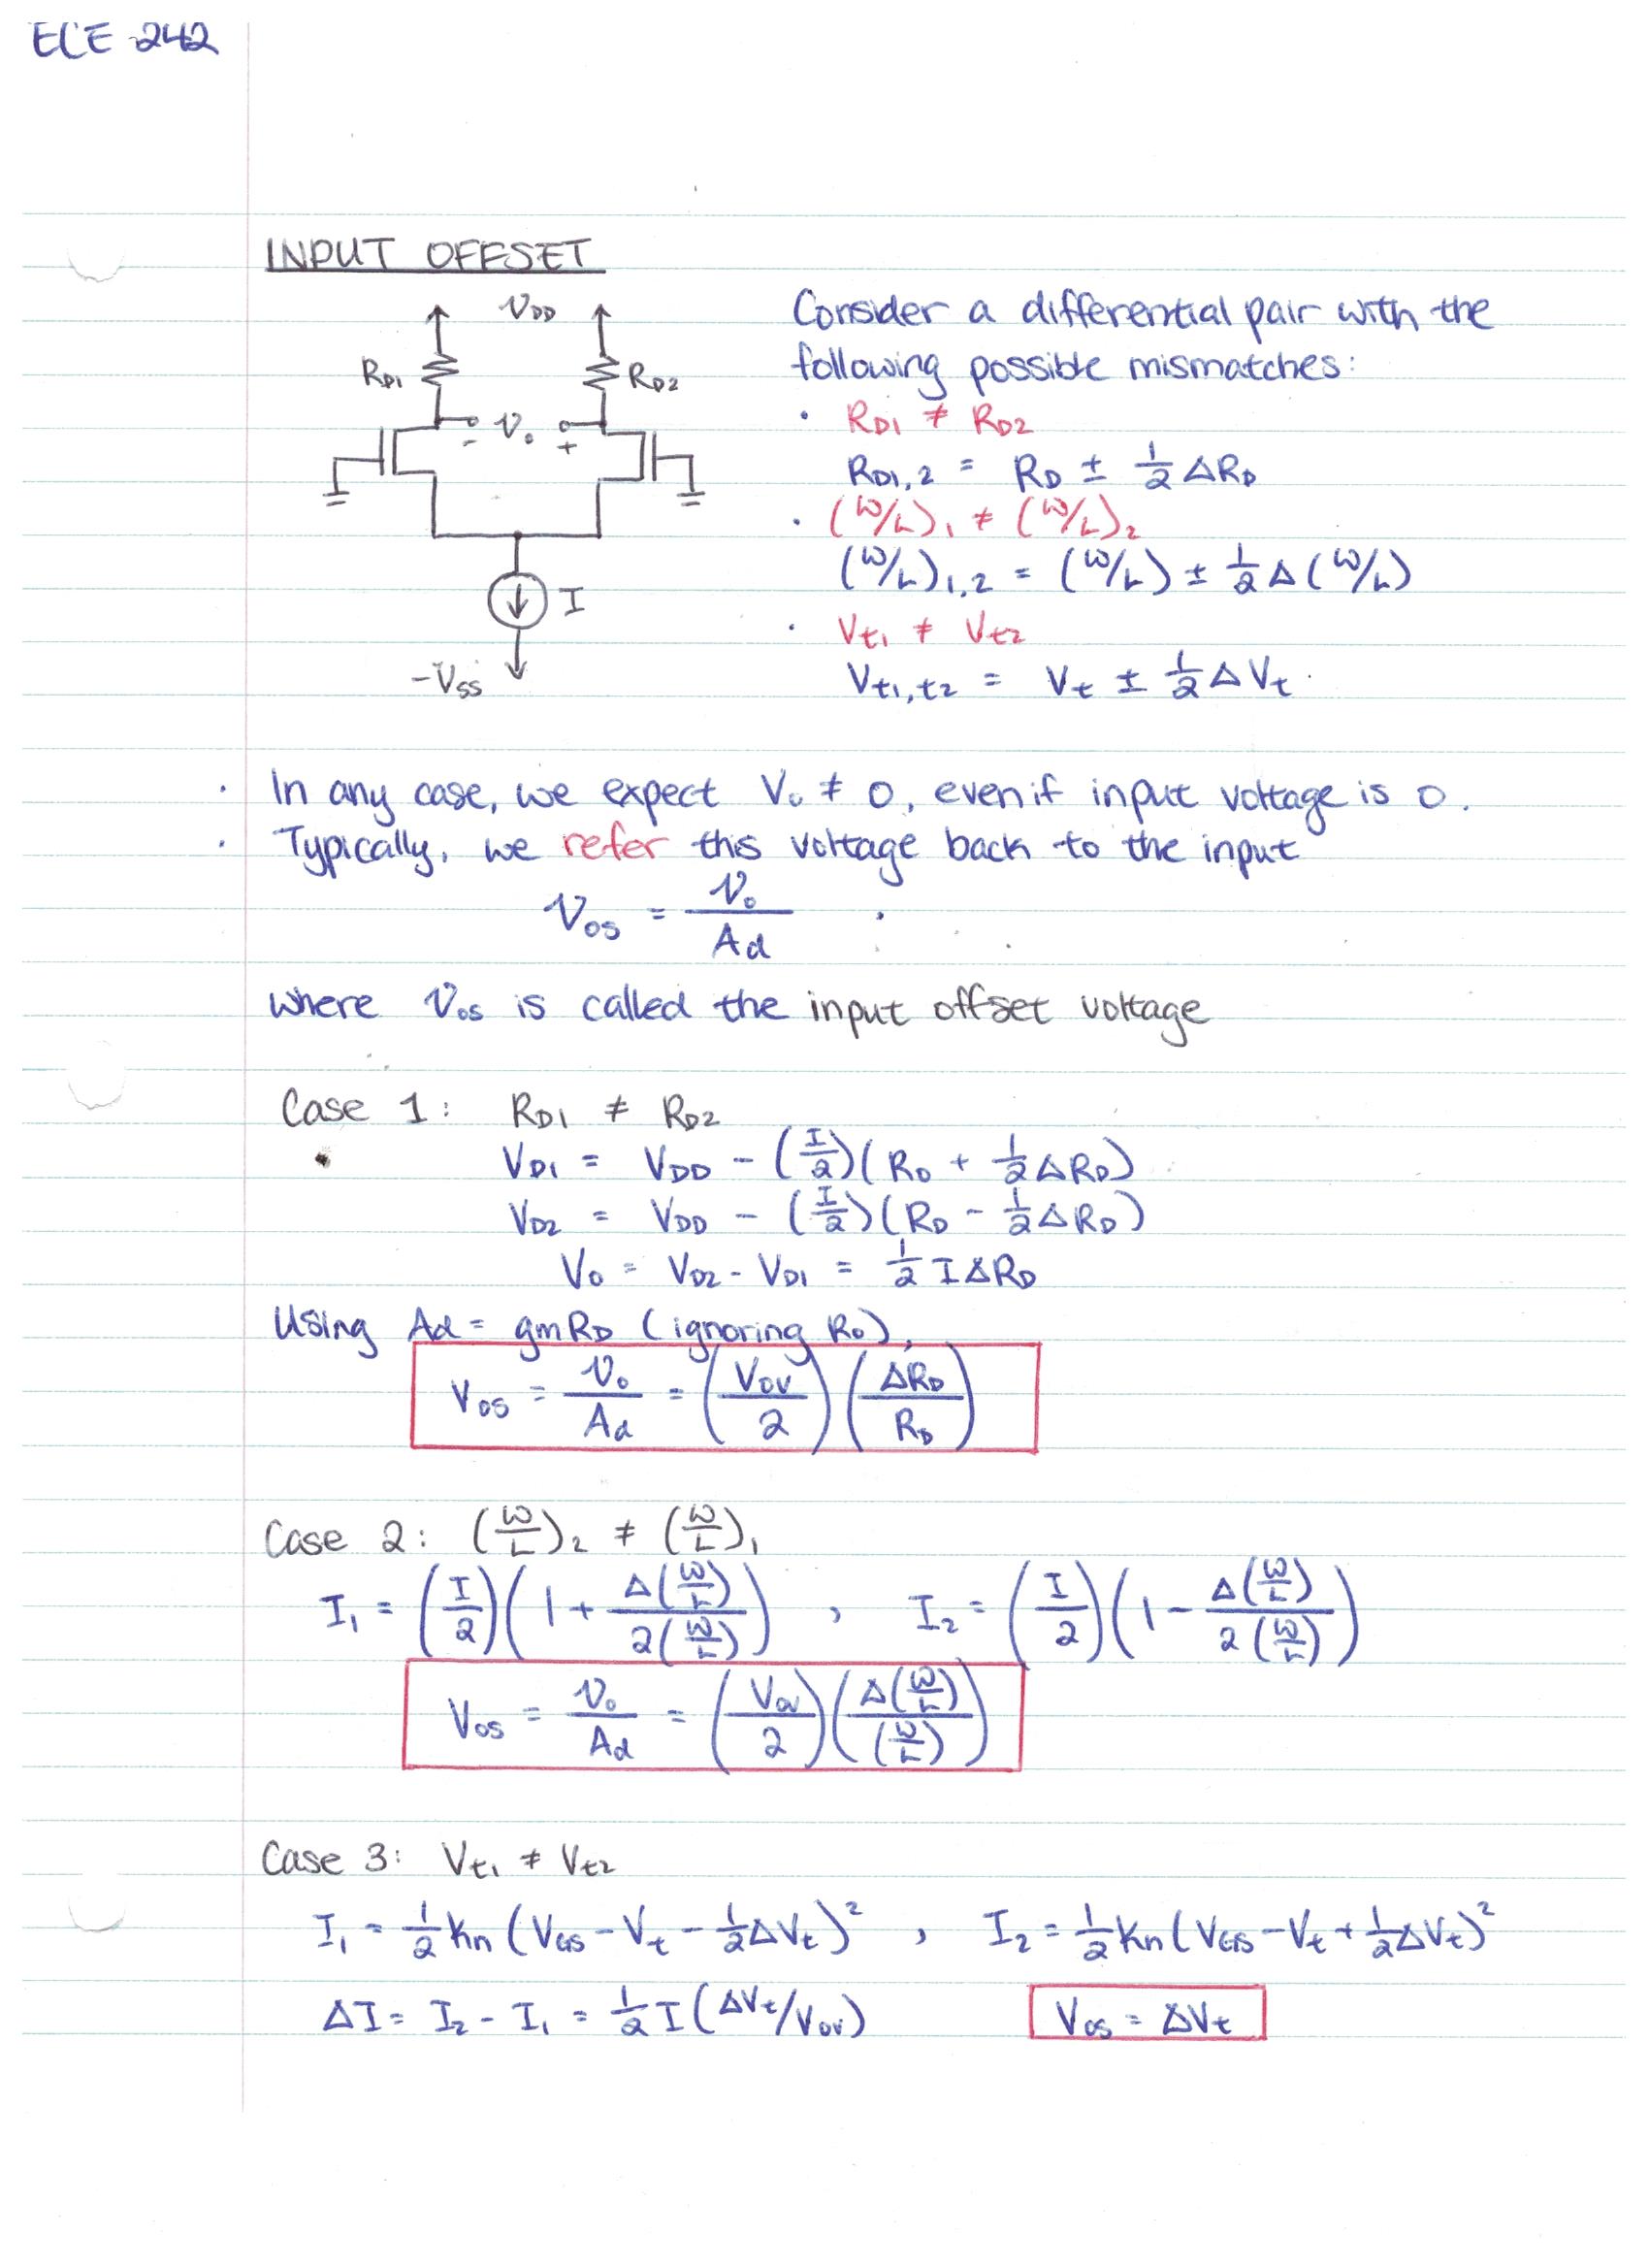 ECE 242
INPUT OFFSET
VDD
RD1
RD2
- Vo +
I
-VSS
Consider a differential pair with the
following possible mismatches:
· RD1 ≠ RD2
RD1,2 = RD ± 1/2 ΔRD
· (W/L)1 ≠ (W/L)2
(W/L)1,2 = (W/L) ± 1/2 Δ(W/L)
· Vt1 ≠ Vt2
Vt1,t2 = Vt ± 1/2 ΔVt
· In any case, we expect Vo ≠ 0, even if input voltage is 0.
· Typically, we refer this voltage back to the input
Vos = Vo / Ad
where Vos is called the input offset voltage
Case 1: RD1 ≠ RD2
VD1 = VDD - (I/2)(RD + 1/2 ΔRD)
VD2 = VDD - (I/2)(RD - 1/2 ΔRD)
Vo = VD2 - VD1 = 1/2 I ΔRD
Using Ad = gmRD (ignoring Ro),
Vos = Vo/Ad = (Vov/2)(ΔRD/RD)
Case 2: (W/L)2 ≠ (W/L)1
I1 = (I/2)(1 + Δ(W/L)/2(W/L)) , I2 = (I/2)(1 - Δ(W/L)/2(W/L))
Vos = Vo/Ad = (Vov/2)(Δ(W/L)/(W/L))
Case 3: Vt1 ≠ Vt2
I1 = 1/2 kn (VGS - Vt - 1/2 ΔVt)² , I2 = 1/2 kn (VGS - Vt + 1/2 ΔVt)²
ΔI = I2 - I1 = 1/2 I (ΔVt/Vov) Vos = ΔVt